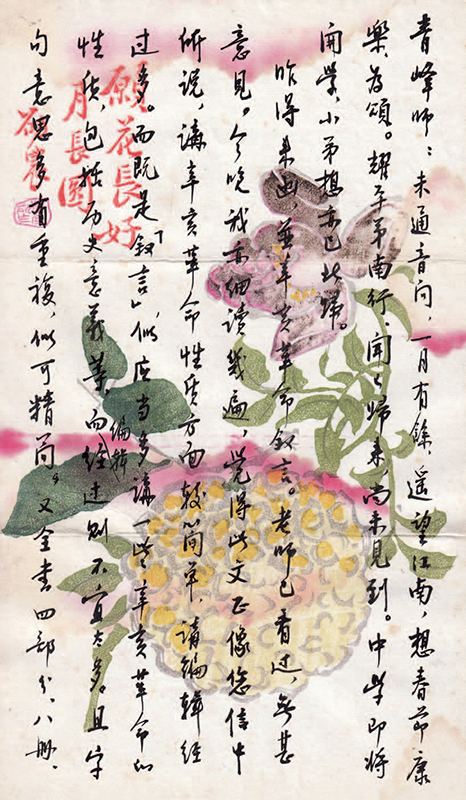 青峰师：未通音问，一月有餘，遥望江南，想春节康
樂为颂。耀平弟南行，闻已歸来，尚未见到。中学即将
開学，小弟想亦已北歸。
昨得来函并辛亥革命叙言。老师已看过，无甚
意见。今晚我亦细读几遍，觉得此文正像您信中
所说，講辛亥革命性质方面较简单，講编辑经
过多。而既是「叙言」，似应当多講一些辛亥革命的
性质，包括历史意義等，而编辑经过则不宜太多。且字
句意思多有重複，似可精简。又全書四部分，八册，
願花長好
月長圓